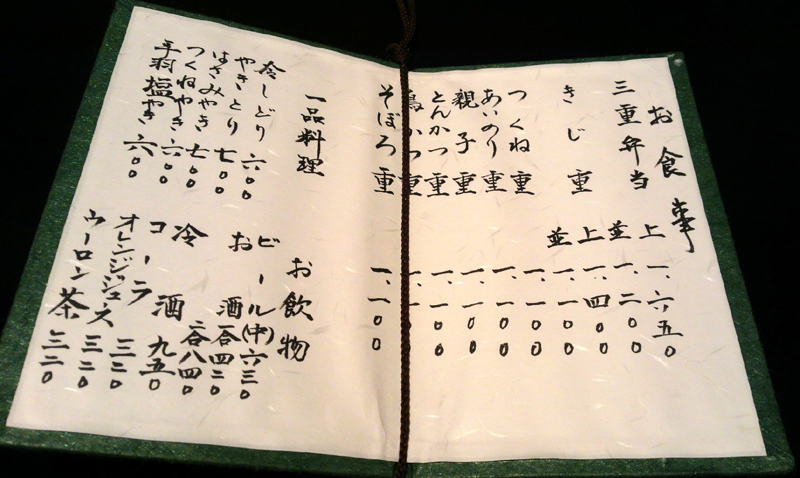 お食事
三重弁当 上 一、六五〇
並 一、二〇〇
きじ重 上 一、四〇〇
並 一、一〇〇
つくね重 一、一〇〇
あいのり重 一、一〇〇
親子重 一、一〇〇
とんかつ重 一、一〇〇
鳥かつ重
そぼろ重 一、一〇〇
一品料理
冷しどり 六〇〇
やきとり 七〇〇
はさみやき 七〇〇
つくねやき 六〇〇
手羽塩やき 六〇〇
お飲物
ビール(中) 六三〇
お酒 一合四二〇
二合八四〇
冷酒 九五〇
コーラ 三二〇
オレンジジュース 三二〇
ウーロン茶 三二〇